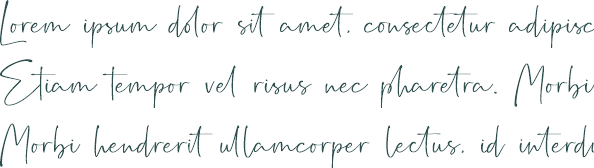 Lorem ipsum dolor sit amet, consectetur adipisc
Etiam tempor vel risus nec pharetra. Morbi
Morbi hendrerit ullamcorper lectus, id interdu